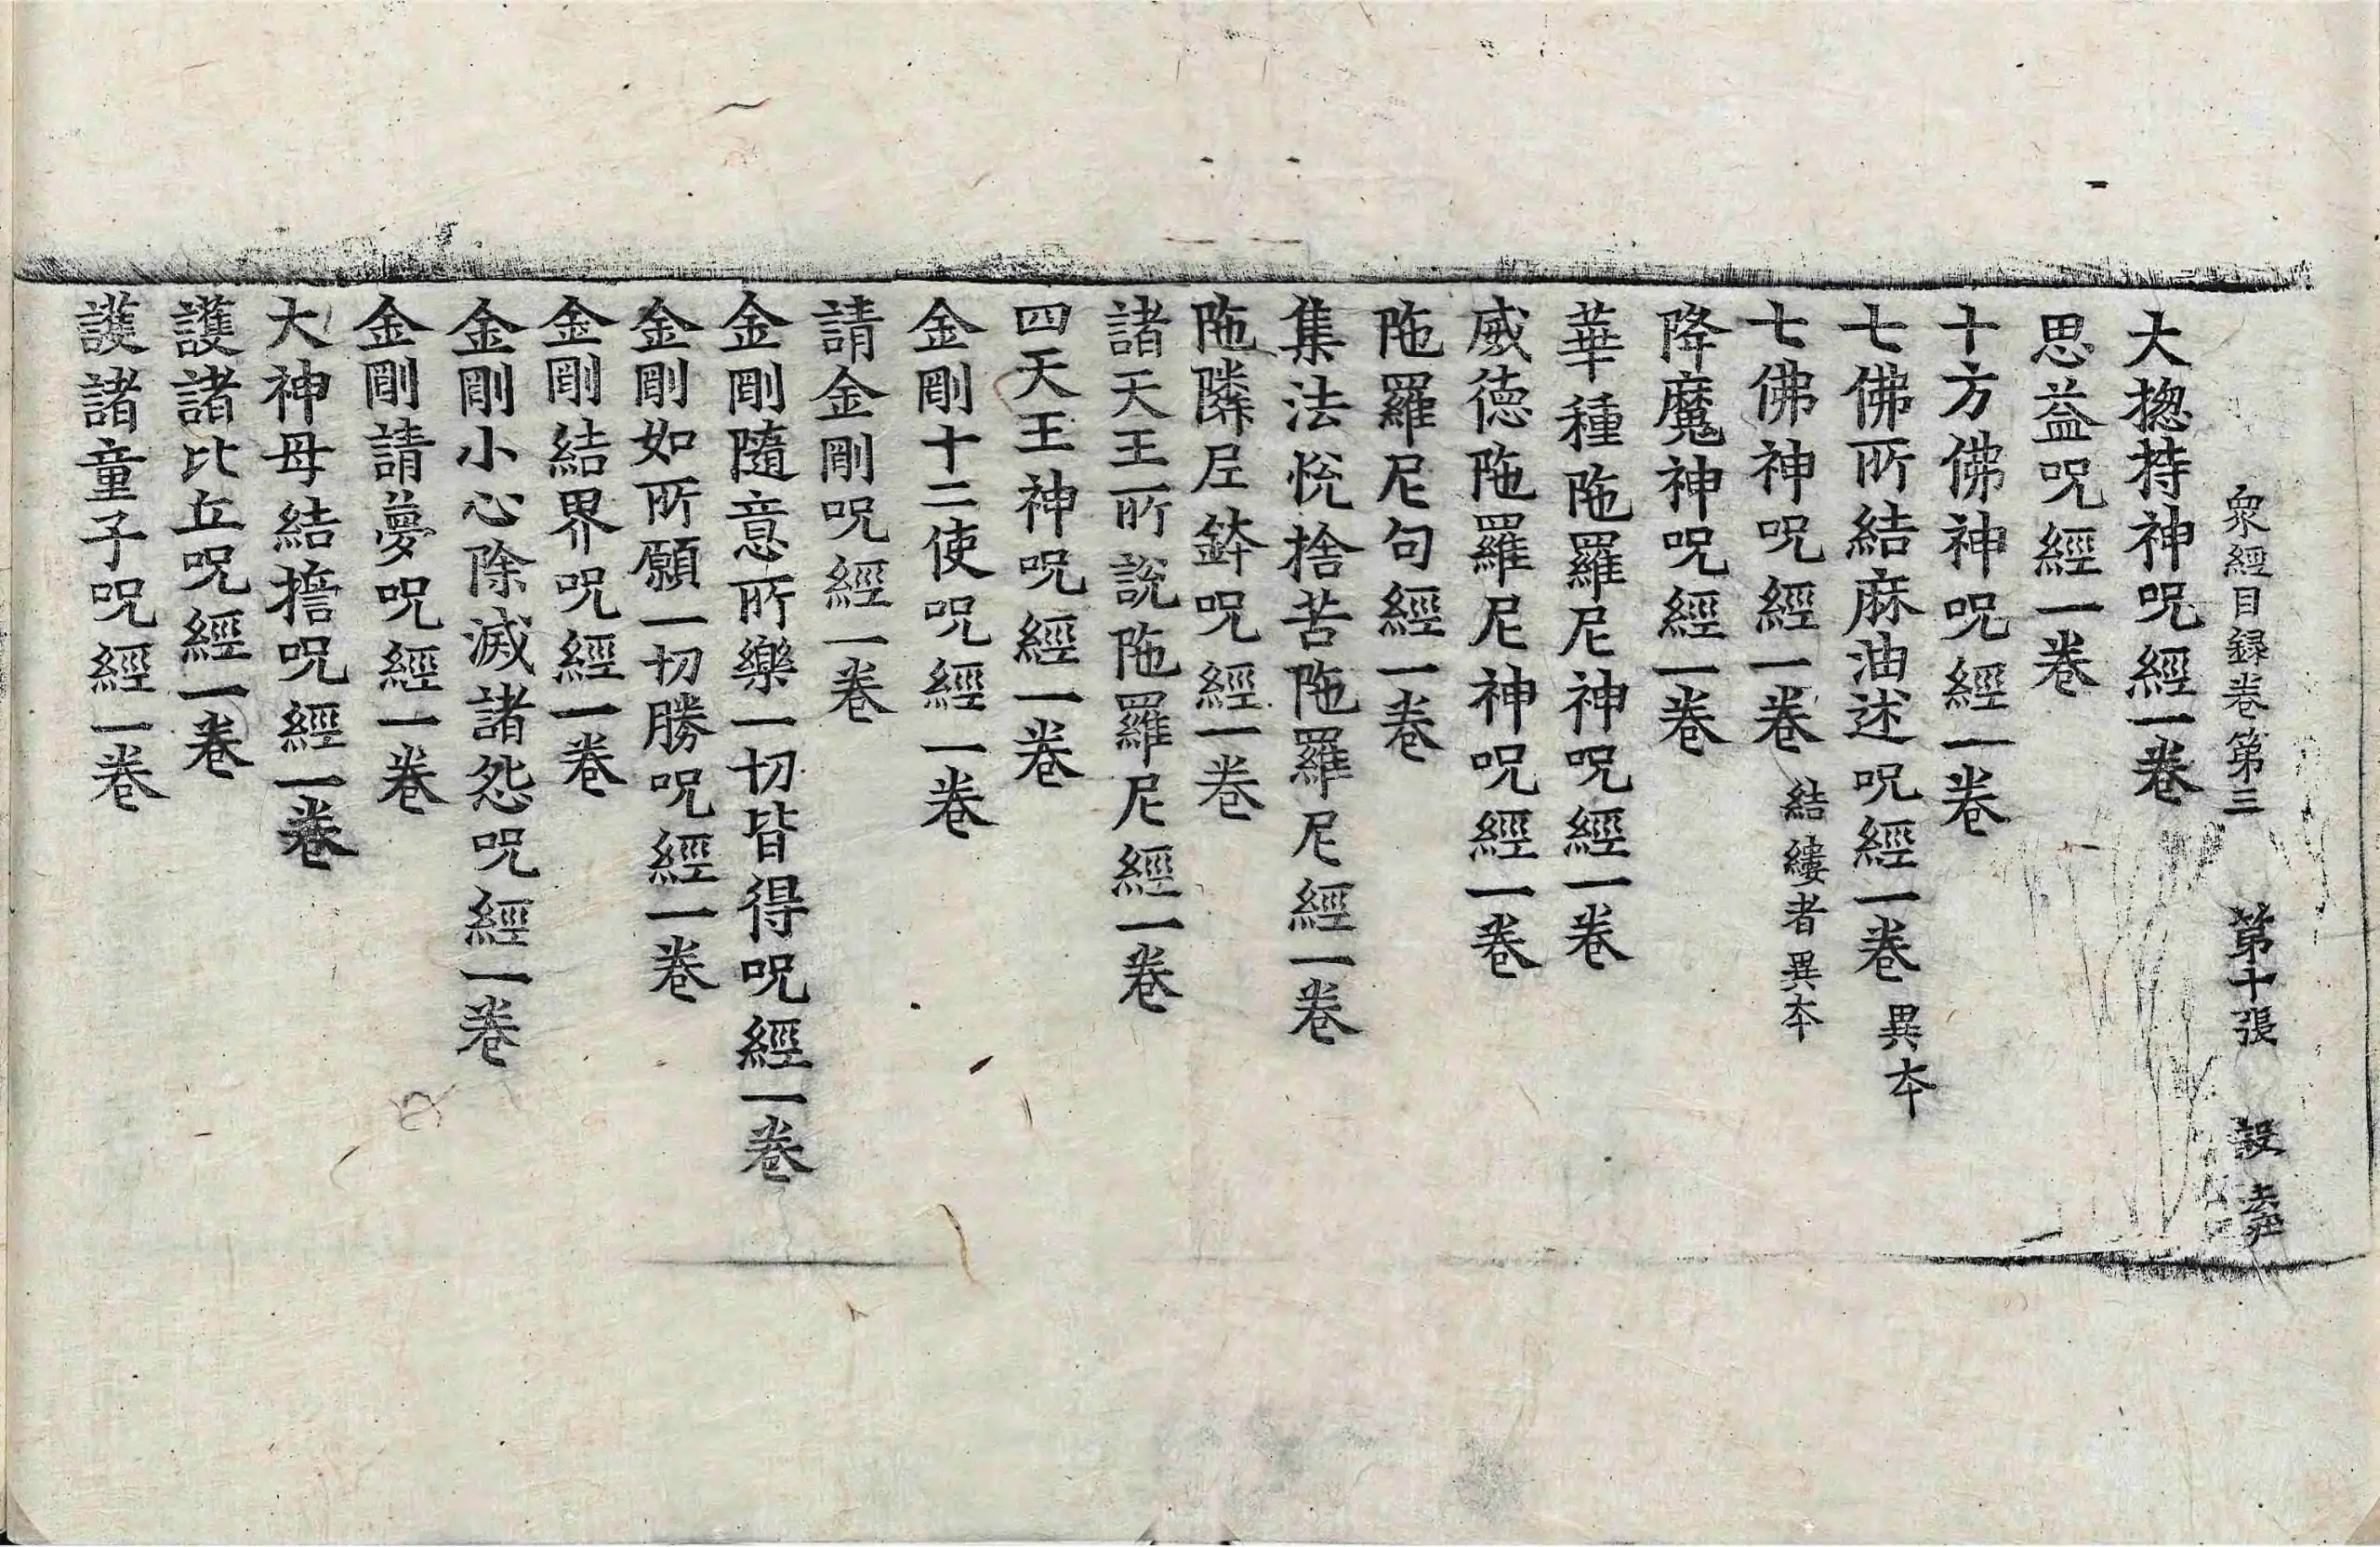 衆經目録卷第三　第十張　設
大揔持神呪經一卷
思益呪經一卷
十方佛神呪經一卷
七佛所結麻油述呪經一卷　異本
七佛神呪經一卷　結縷者異本
降魔神呪經一卷
華種陁羅尼神呪經一卷
威德陁羅尼神呪經一卷
陁羅尼句經一卷
集法悅捨苦陁羅尼經一卷
陁隣尼鉢呪經一卷
諸天王所說陁羅尼經一卷
四天王神呪經一卷
金剛十二使呪經一卷
請金剛呪經一卷
金剛隨意所樂一切皆得呪經一卷
金剛如所願一切勝呪經一卷
金剛結界呪經一卷
金剛小心除滅諸怨呪經一卷
金剛請夢呪經一卷
大神母結擔呪經一卷
護諸比丘呪經一卷
護諸童子呪經一卷